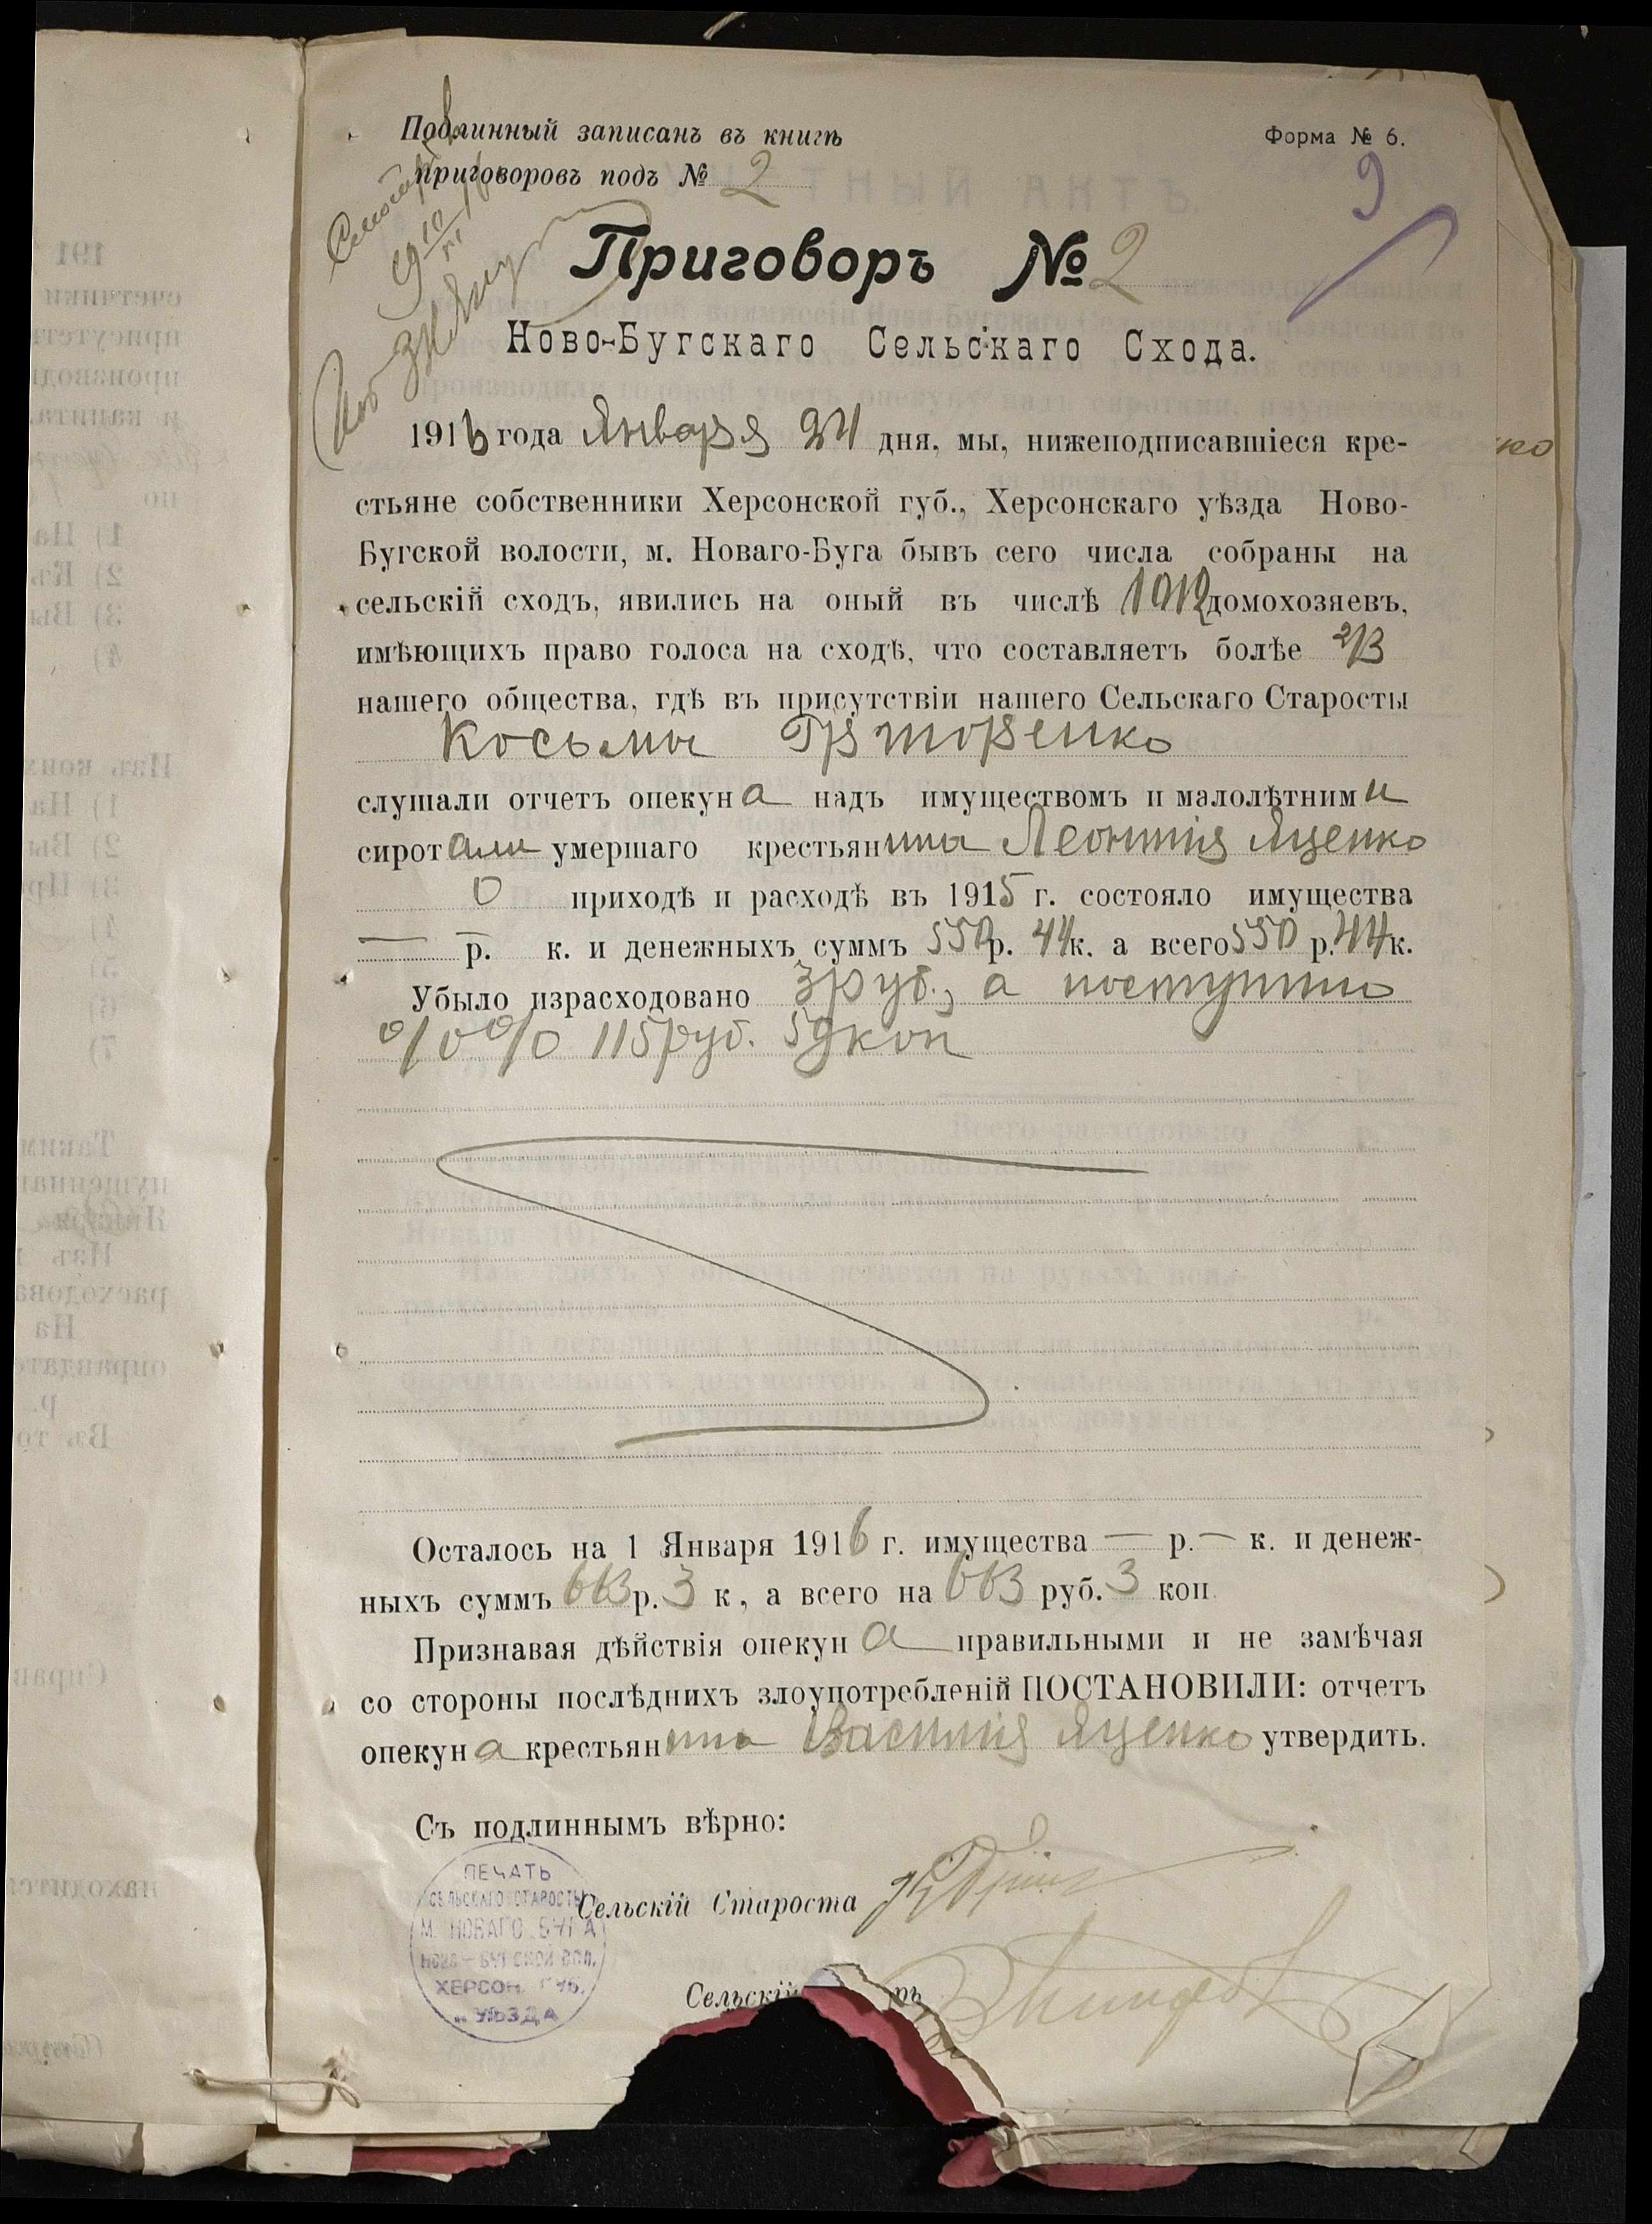 Подлинный записанъ въ книгѣ
приговоровъ подъ № 2
Форма № 6.
9
Приговоръ № 2
Ново-Бугскаго Сельскаго Схода.
1916 года Января 24 дня, мы, нижеподписавшіеся кре-
стьяне собственники Херсонской губ., Херсонскаго уѣзда Ново-
Бугской волости, м. Новаго-Буга бывъ сего числа собраны на
сельскій сходъ, явились на оный въ числѣ 1012 домохозяевъ,
имѣющихъ право голоса на сходѣ, что составляетъ болѣе 2/3
нашего общества, гдѣ въ присутствіи нашего Сельскаго Старосты
Косьмы
слушали отчетъ опекуна надъ имуществомъ и малолѣтними
сиротами умершаго крестьянина Леонтія Яценко
о приходѣ и расходѣ въ 1915 г. состояло имущества
— р. к. и денежныхъ суммъ 550 р. 44 к. а всего 550 р. 44 к.
Убыло израсходовано 3 руб., а поступило
%% 115 руб. 59 коп
Осталось на 1 Января 1916 г. имущества — р. — к. и денеж-
ныхъ суммъ 663 р. 3 к, а всего на 663 руб. 3 коп.
Признавая дѣйствія опекуна правильными и не замѣчая
со стороны послѣднихъ злоупотребленій ПОСТАНОВИЛИ: отчетъ
опекуна крестьянина Василія Яценко утвердить.
Съ подлиннымъ вѣрно:
Сельскій Староста
Сельскій
ПЕЧАТЬ
СЕЛЬСКАГО СТАРОСТЫ
М. НОВАГО БУГА
НОВО-БУГСКОЙ ВОЛ.
ХЕРСОН. ГУБ.
УѢЗДА